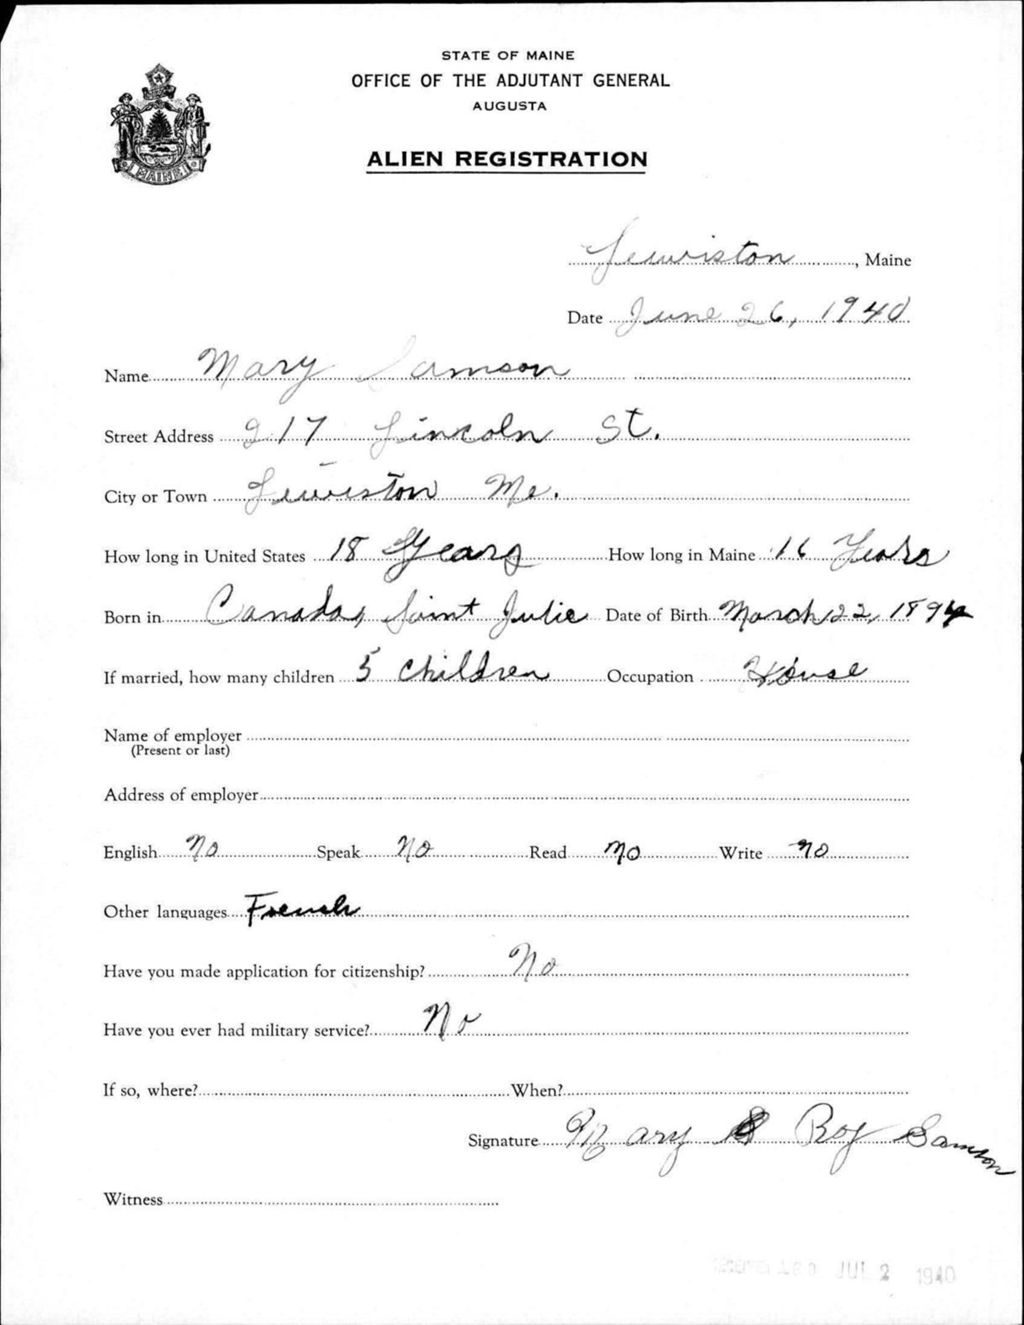 STATE OF MAINE
OFFICE OF THE ADJUTANT GENERAL
AUGUSTA
ALIEN REGISTRATION
MAINE
Lewiston, Maine
Date June 26, 1940
Name Mary Samson
Street Address 217 Lincoln St.
City or Town Lewiston Me.
How long in United States 18 Years How long in Maine 16 Years
Born in Canada, Saint Julie Date of Birth March 22, 1894
If married, how many children 5 children Occupation House
Name of employer
(Present or last)
Address of employer
English No Speak No Read no Write no
Other languages French
Have you made application for citizenship? No
Have you ever had military service? No
If so, where? When?
Signature Mary Roy Samson
Witness
JUL 2 1940